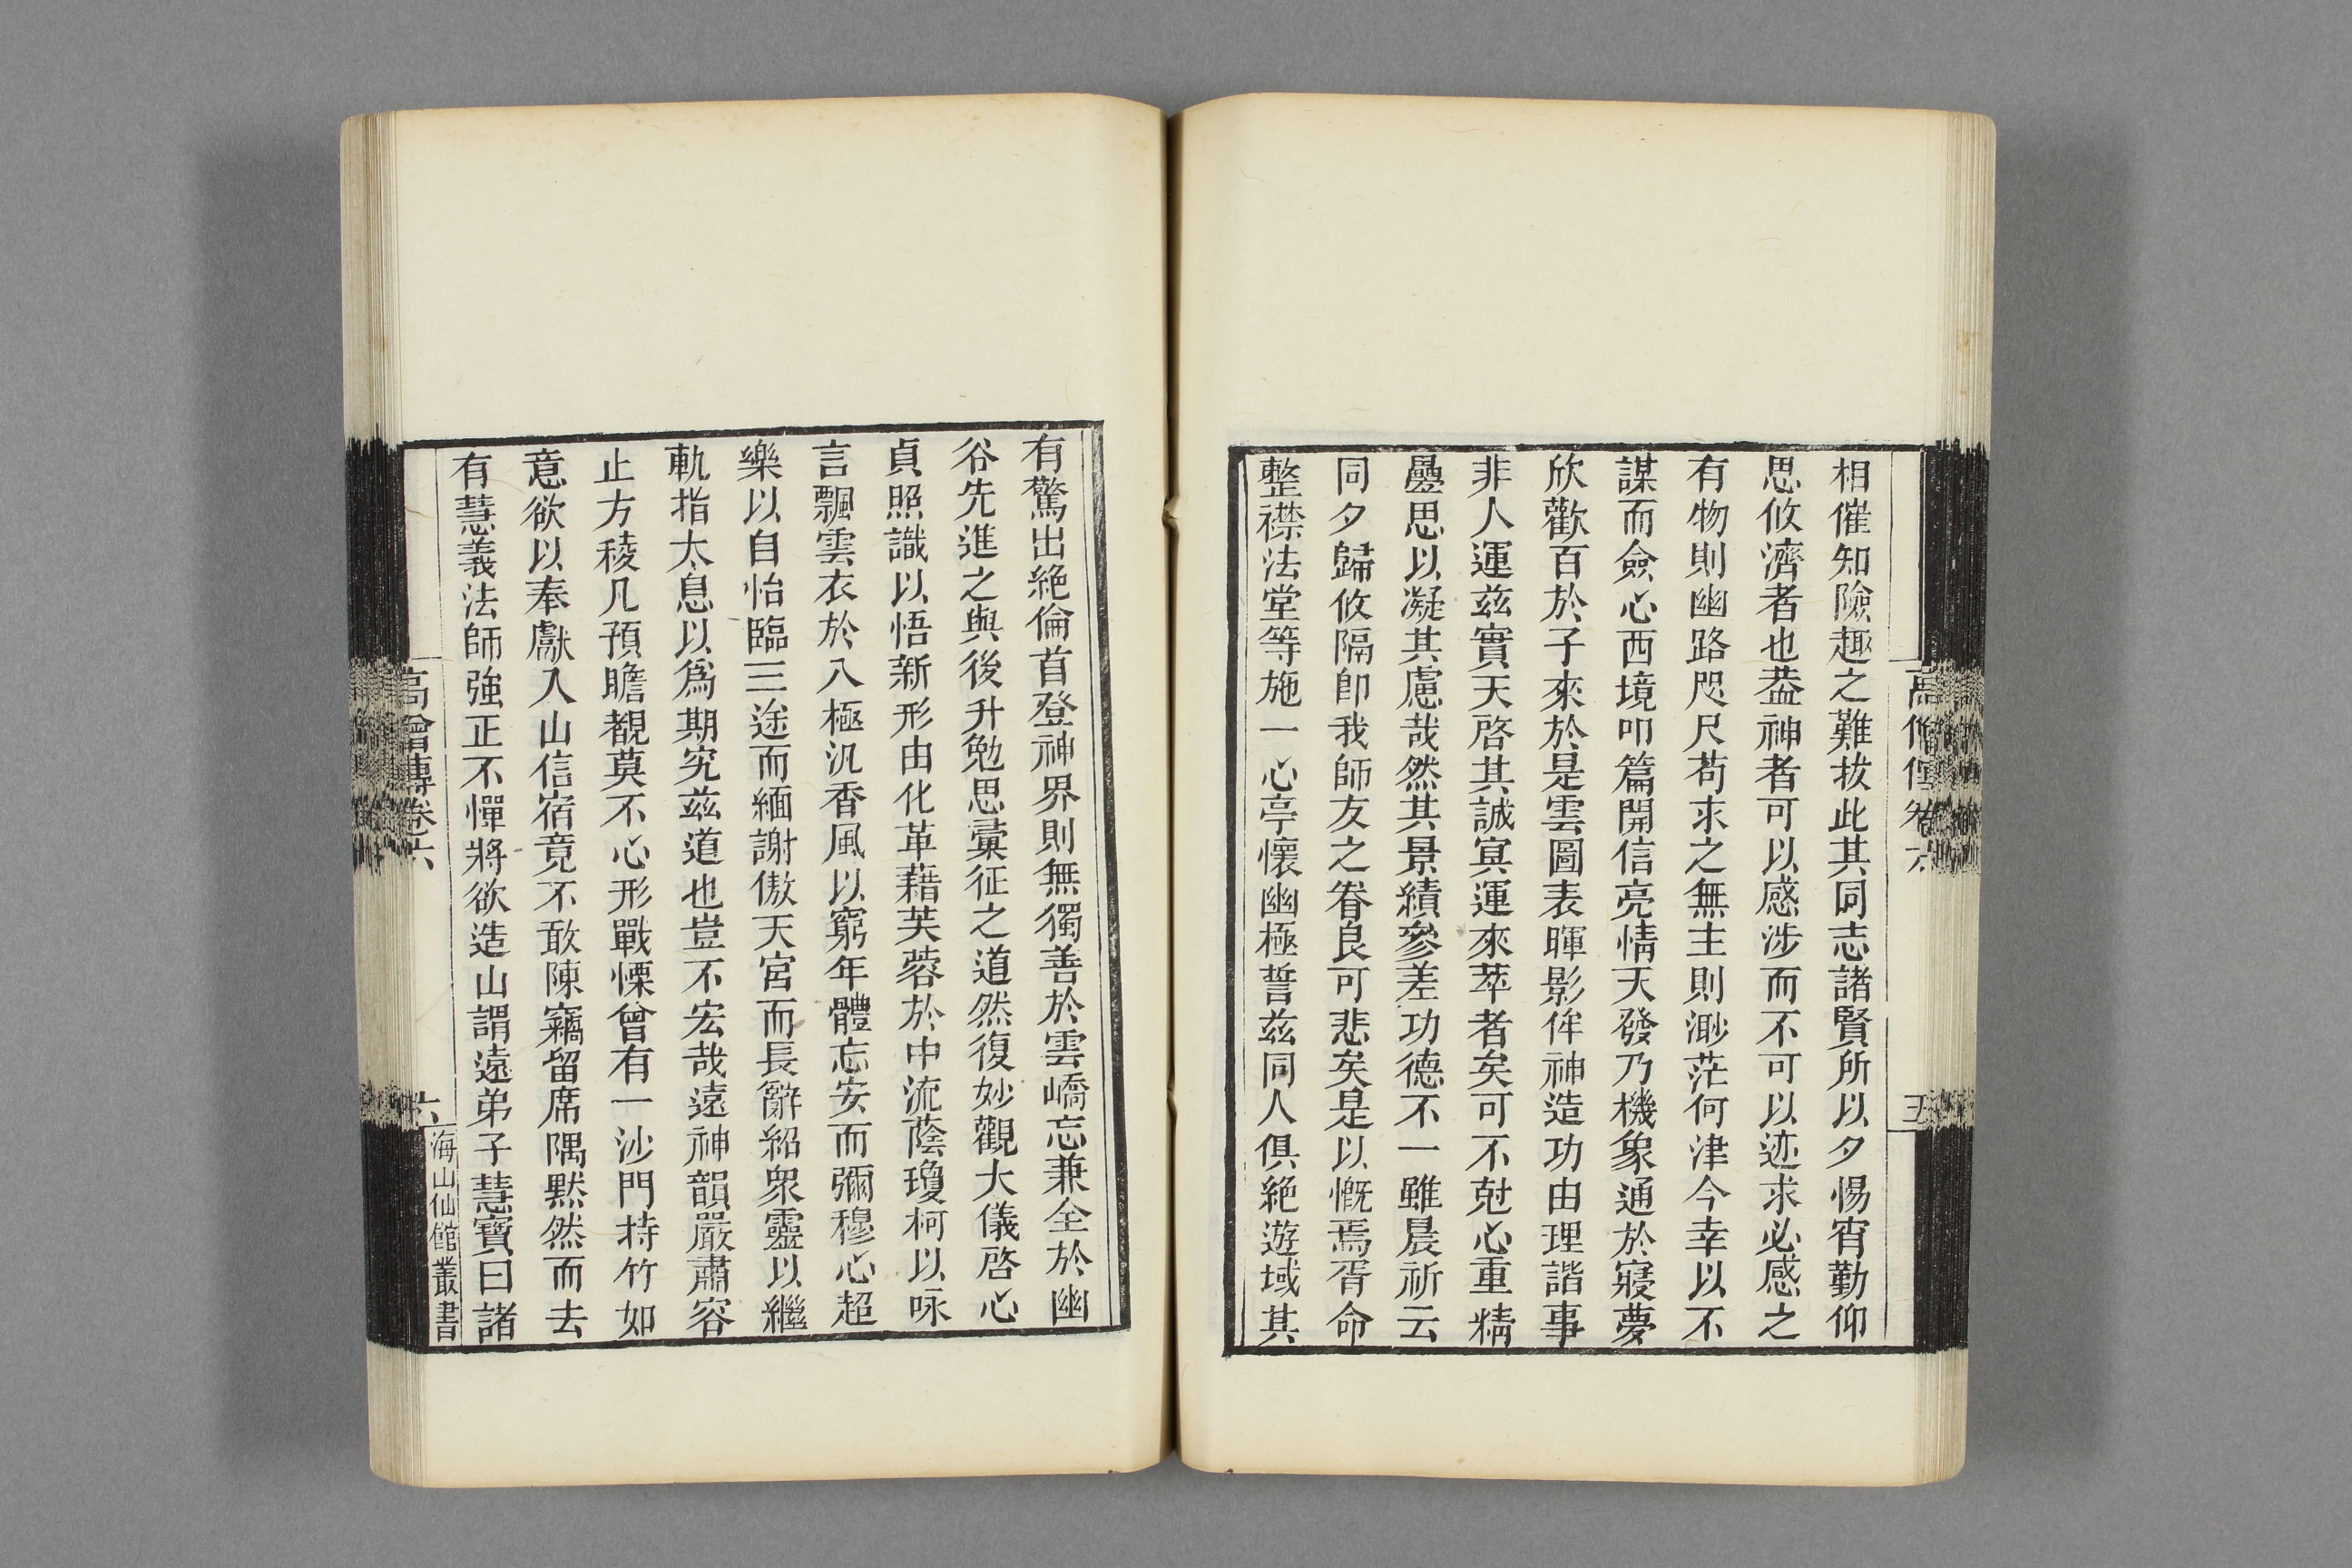 高僧傳卷六
五
相催知險趣之難拔此其同志諸賢所以夕惕宵勤仰
思攸濟者也葢神者可以感涉而不可以迹求必感之
有物則幽路咫尺苟求之無主則渺茫何津今幸以不
謀而僉心西境叩篇開信亮情天發乃機象通於寢夢
欣歡百於子來於是雲圖表暉影侔神造功由理諧事
非人運茲實天啓其誠冥運來萃者矣可不尅心重精
疊思以凝其慮哉然其景績參差功德不一雖晨祈云
同夕歸攸隔卽我師友之眷良可悲矣是以慨焉胥命
整襟法堂等施一心亭懷幽極誓茲同人俱絶遊域其
有驚出絶倫首登神界則無獨善於雲嶠忘兼全於幽
谷先進之與後升勉思彙征之道然復妙觀大儀啓心
貞照識以悟新形由化革藉芙蓉於中流蔭瓊柯以咏
言飄雲衣於八極汎香風以窮年體忘安而彌穆心超
樂以自怡臨三途而緬謝傲天宮而長辭紹衆靈以繼
軌指太息以爲期究茲道也豈不宏哉遠神韻嚴肅容
止方稜凡預瞻覩莫不心形戰慄曾有一沙門持竹如
意欲以奉獻入山信宿竟不敢陳竊留席隅默然而去
有慧義法師強正不憚將欲造山謂遠弟子慧寶曰諸
高僧傳卷六
六
海山仙館叢書